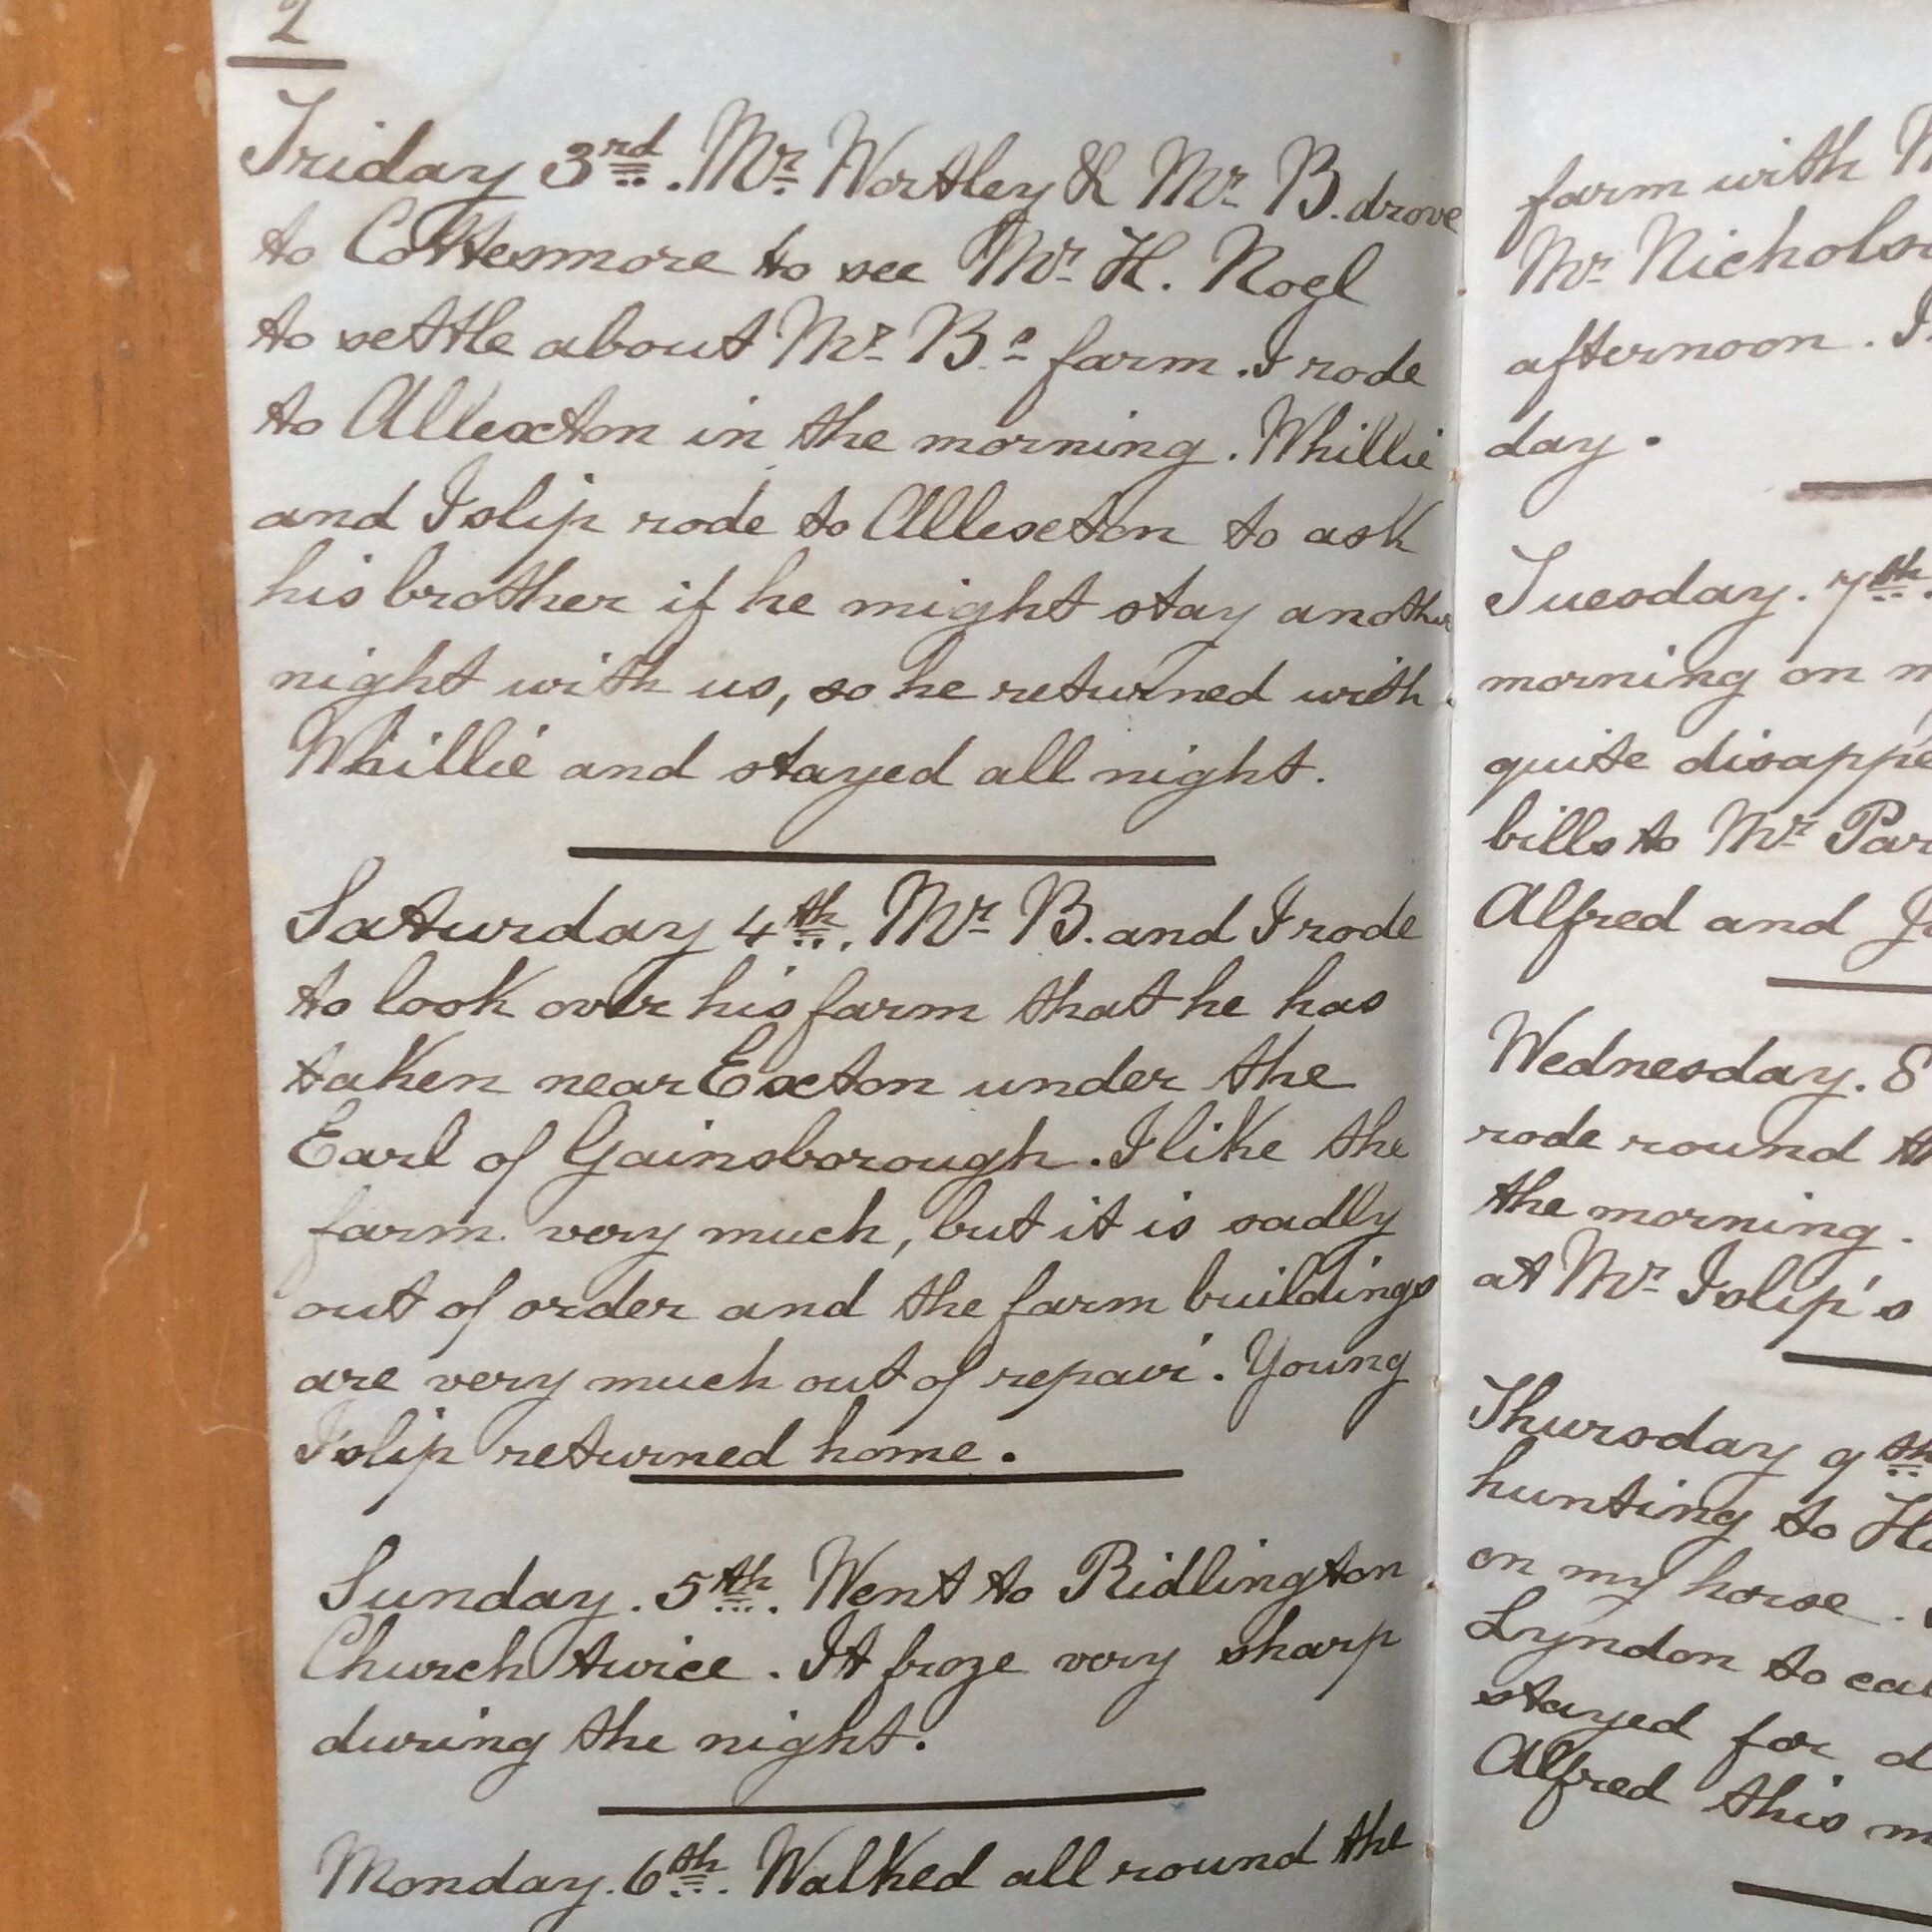 2
Friday 3rd. Mr Wortley & Mr B. drove
to Cottesmore to see Mr H. Nogl
to settle about Mr Bs farm. I rode
to Allexton in the morning. Whillie
and Islip rode to Allexton to ask
his brother if he might stay another
night with us, so he returned with
Whillie and stayed all night.
Saturday 4th. Mr B. and I rode
to look over his farm that he has
taken near Exton under the
Earl of Gainsborough. I like the
farm very much, but it is sadly
out of order and the farm buildings
are very much out of repair. Young
Islip returned home.
Sunday. 5th. Went to Ridlington
Church twice. It froze very sharp
during the night.
Monday. 6th. Walked all round the
farm with
Mr Nichols
afternoon.
day.
Tuesday. 7th.
morning on
quite disappo
bills to Mr Par
Alfred and
Wednesday. 8
rode round
the morning.
at Mr Islip's
Thursday 9th
hunting to
on my horse.
Lyndon to
stayed for d
Alfred this m